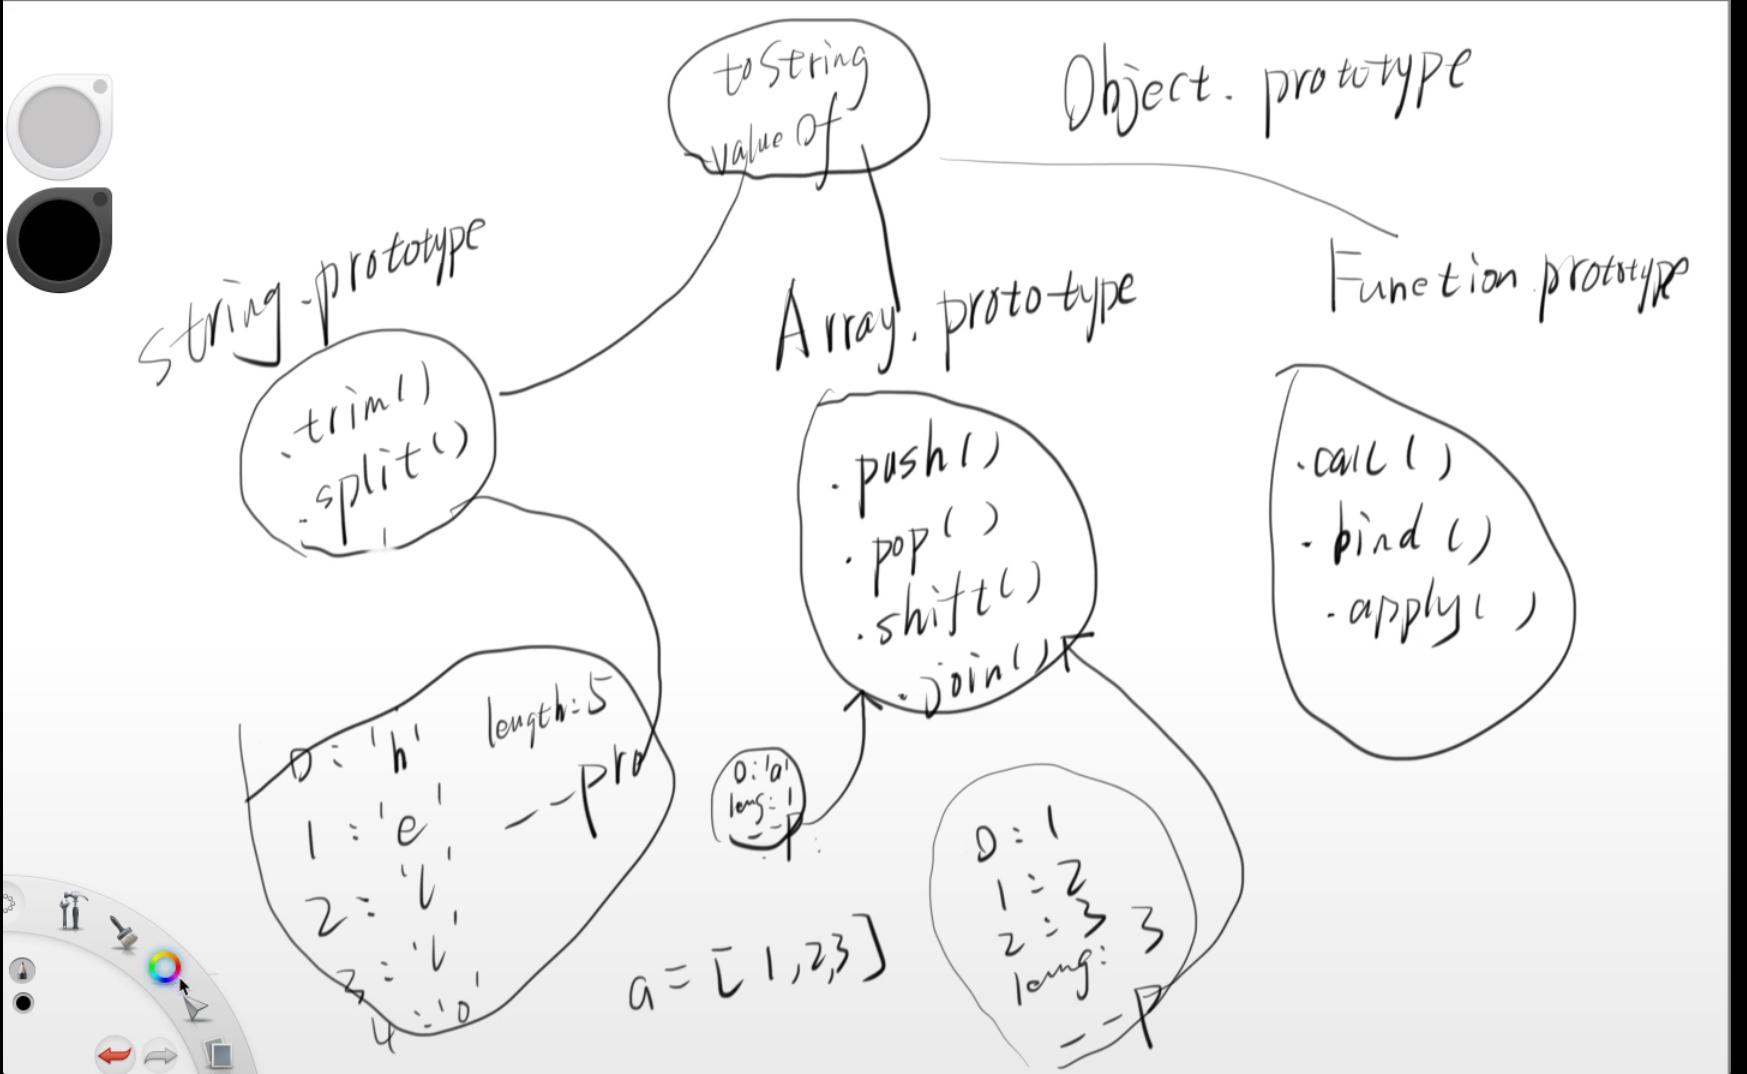 toString
valueOf
Object.prototype
string.prototype
.trim()
.split()
Array.prototype
.push()
.pop()
.shift()
.join()
Function.prototype
.call()
.bind()
.apply()
0:'h' length:5
1:'e' --pro
2:'l'
3:'l'
4:'o'
0:'a'
leng:1
--p
a=[1,2,3]
0:1
1:2
2:3
leng:3
--p